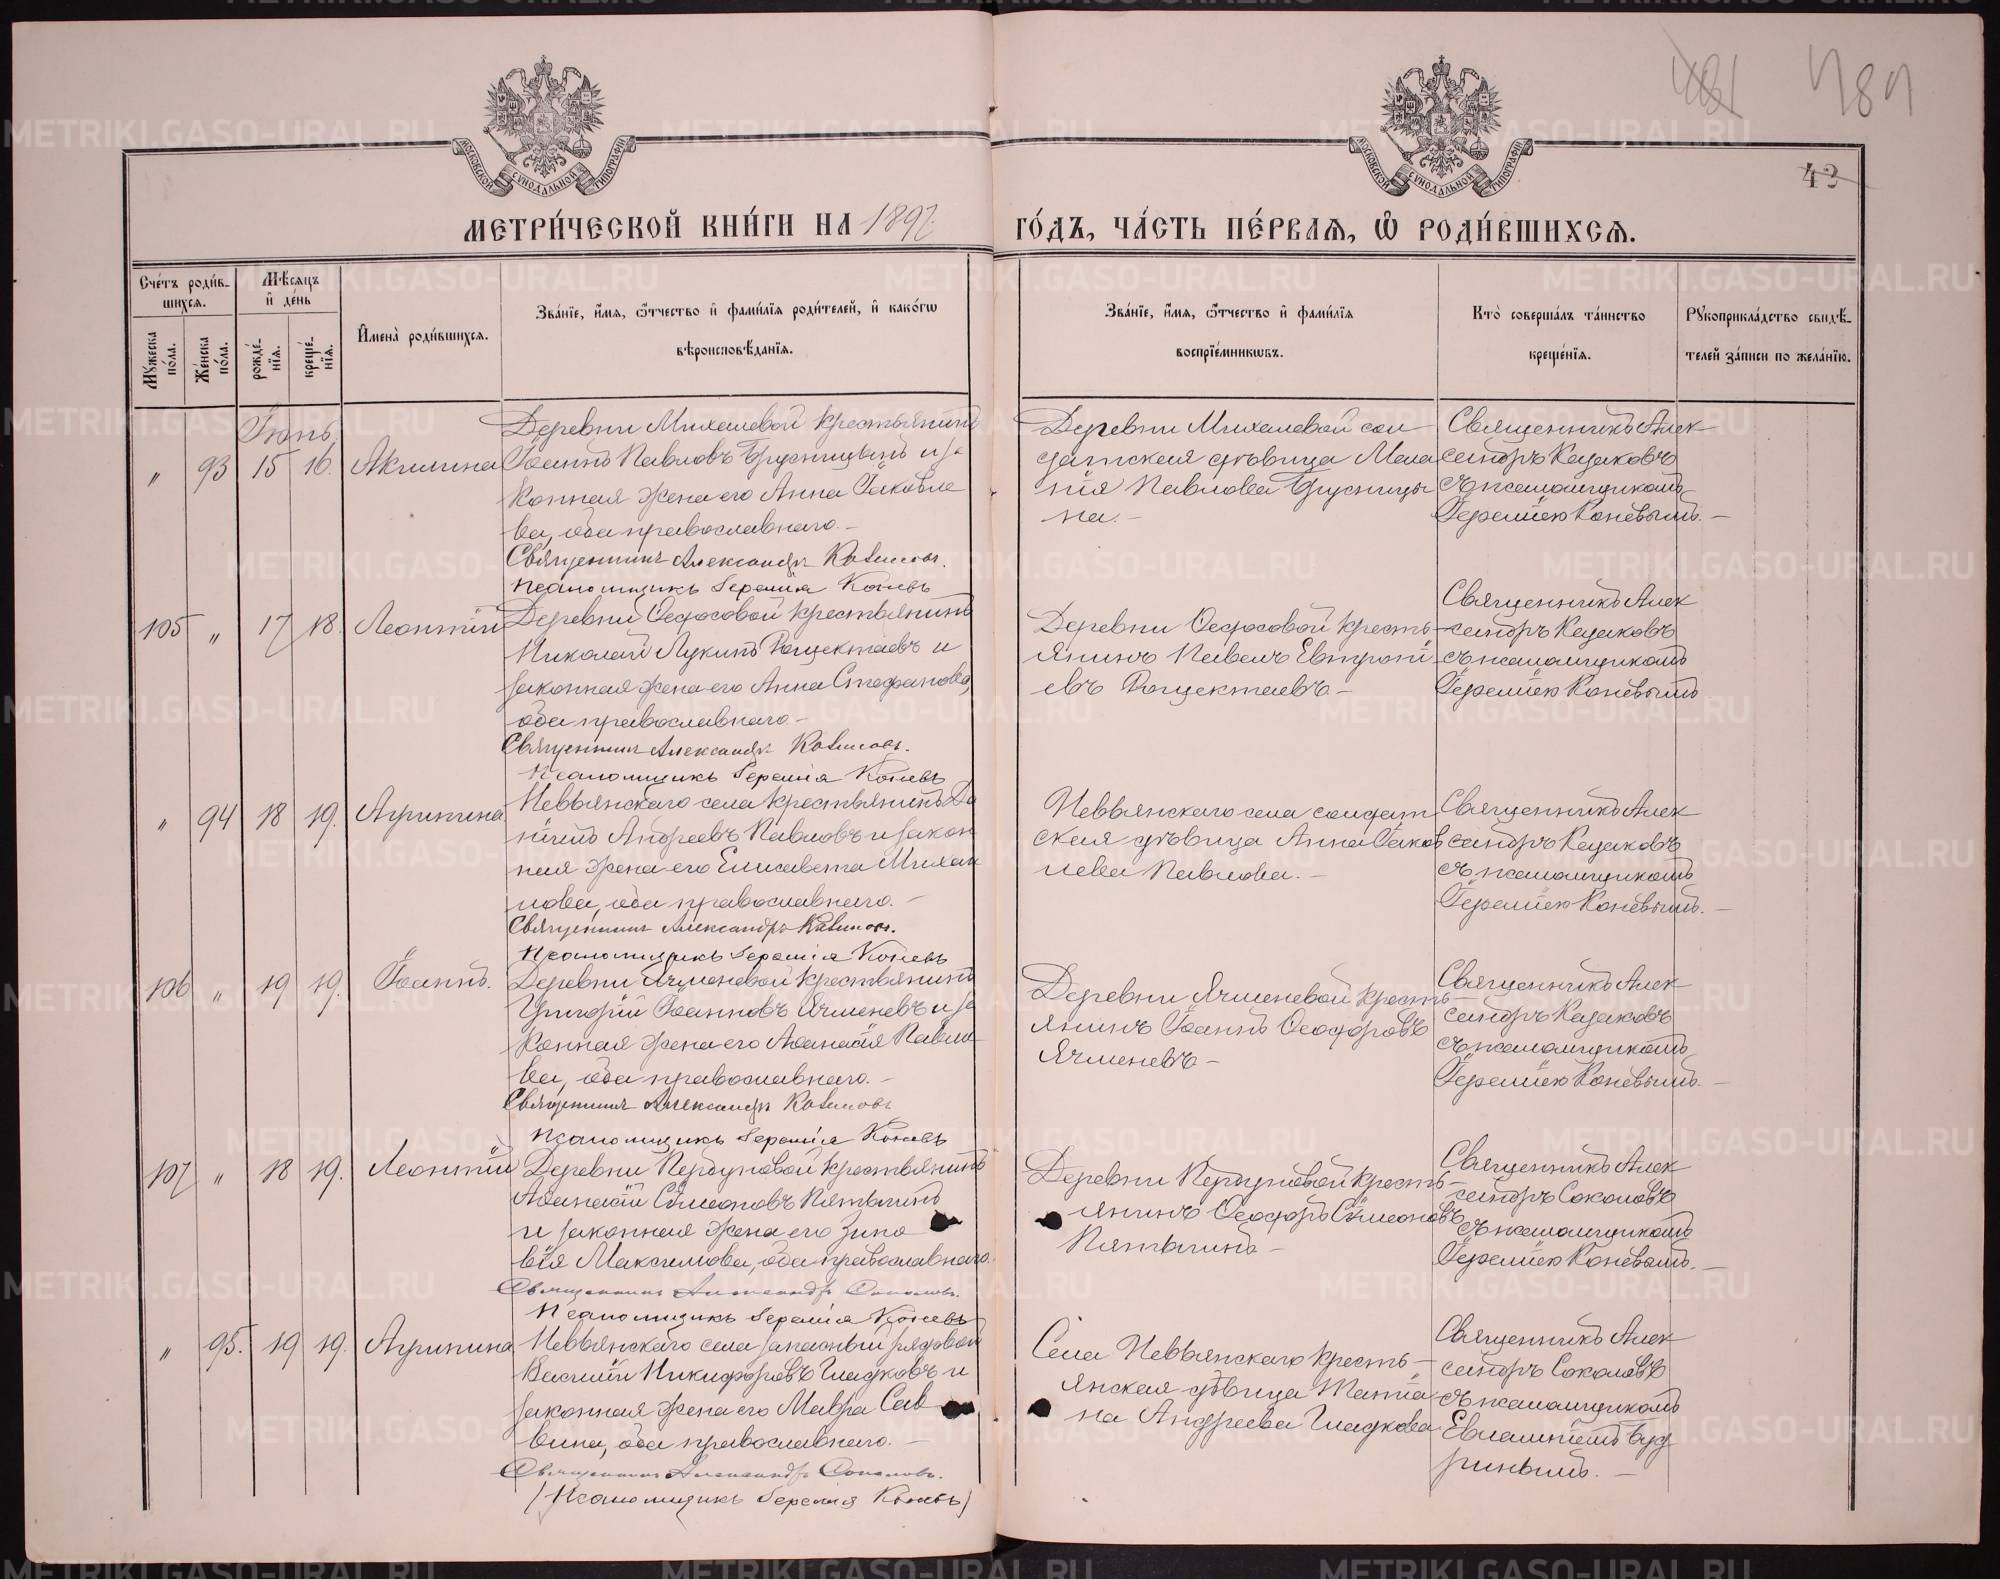 481 489
МОСКОВСКОЙ СѴНОДАЛЬНОЙ ТИПОГРАФІИ
МОСКОВСКОЙ СѴНОДАЛЬНОЙ ТИПОГРАФІИ
43
МЕТРИ́ЧЕСКОЙ КНИ́ГИ НА 1897
ГО́ДЪ, ЧА́СТЬ ПЕ́РВАЯ, Ѡ҆ РОДИ́ВШИХСЯ.
Сче́тъ роди́в-
шихся.
Мꙋжеска по́ла.
Же́нска по́ла.
Мѣ́сяцъ
и҆ де́нь
рожде́нїя.
креще́нїя.
И҆мена̀ роди́вшихся.
Зва́нїе, и҆́мя, ѻ҆́тчество и҆ фами́лїя роди́телей, и҆ како́гѡ
вѣроисповѣ́данїя.
Зва́нїе, и҆́мя, ѻ҆́тчество и҆ фами́лїя
воспрїе́мникѡвъ.
Кто̀ соверша́лъ та́инство
креще́нїя.
Рꙋкоприкла́дство свидѣ́-
телей за́писи по жела́нїю.
Іюнь.
„ 93 15 16. Акилина
Деревни Михалевой крестьянинъ
Іоаннъ Павловъ Брусницынъ и за
конная жена его Анна Іаковле
ва, оба православнаго. –
Священникъ Александръ Казаковъ.
Псаломщикъ Іеремія Коневъ
Деревни Михалевой сол
датская дѣвица Мела
нія Павлова Брусницы
на. –
Священникъ Алек
сандръ Казаковъ
съ псаломщикомъ
Іереміею Коневымъ. –
105 „ 17 18. Леонтій
Деревни Ѳедосовой крестьянинъ
Николай Лукинъ Рощектаевъ и
законная жена его Анна Стефанова,
оба православнаго –
Священникъ Александръ Казаковъ.
Псаломщикъ Іеремія Коневъ
Деревни Ѳедосовой кресть-
янинъ Павелъ Евтропі
евъ Рощектаевъ –
Священникъ Алек
сандръ Казаковъ
съ псаломщикомъ
Іереміею Коневымъ
„ 94 18 19. Агрипина
Невьянскаго села крестьянинъ Да
ніилъ Андреевъ Павловъ и закон
ная жена его Елисавета Михаи
лова, оба православнаго. –
Священникъ Александръ Казаковъ.
Псаломщикъ Іеремія Коневъ
Невьянскаго села солдат
ская дѣвица Анна Іаков
лева Павлова. –
Священникъ Алек
сандръ Казаковъ
съ псаломщикомъ
Іереміею Коневымъ. –
106 „ 19 19. Іоаннъ.
Деревни Ячменевой крестьянинъ
Григорій Іоанновъ Ячменевъ и за
конная жена его Аѳанасія Павло
ва, оба православнаго. –
Священникъ Александръ Казаковъ
Псаломщикъ Іеремія Коневъ
Деревни Ячменевой кресть-
янинъ Іоаннъ Ѳеодоровъ
Ячменевъ –
Священникъ Алек
сандръ Казаковъ
съ псаломщикомъ
Іереміею Коневымъ. –
107 „ 18 19. Леонтій
Деревни Пердуновой крестьянинъ
Аѳанасій Сѵмеоновъ Пятыгинъ
и законная жена его Зино
вія Максимова, оба православнаго.
Священникъ Александръ Соколовъ.
Псаломщикъ Іеремія Коневъ
Деревни Пердуновой кресть-
янинъ Ѳеодоръ Сѵмеоновъ
Пятыгинъ –
Священникъ Алек
сандръ Соколовъ
съ псаломщикомъ
Іереміею Коневымъ. –
„ 95. 19 19. Агрипина
Невьянскаго села запасный рядовой
Василій Никифоровъ Гладковъ и
законная жена его Мавра Сав
вина, оба православнаго. –
Священникъ Александръ Соколовъ.
Псаломщикъ Іеремія Коневъ
Села Невьянскаго кресть-
янская дѣвица Татіа
на Андреева Гладкова
Священникъ Алек
сандръ Соколовъ
съ псаломщикомъ
Евлампіемъ Буд
ринымъ. –
METRIKI.GASO-URAL.RU